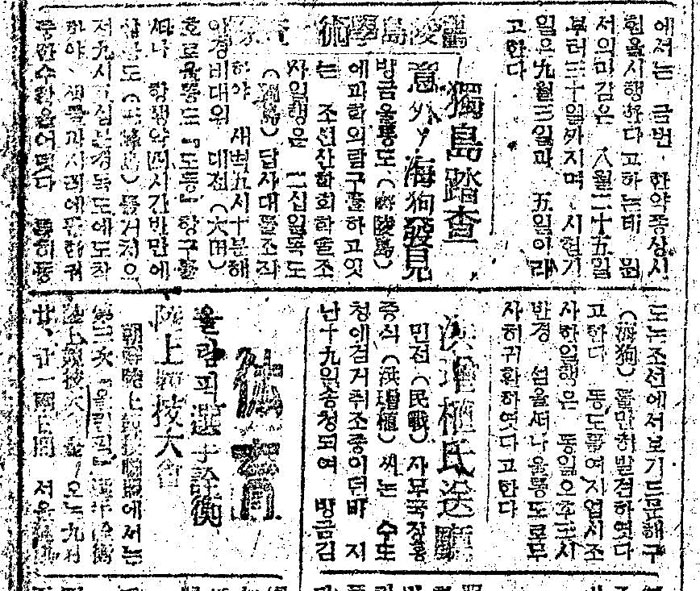 에서는 금번 한약종상시
험을시행한다고하는데 원
서의마감은 八월二十五일
부터三十일까지며 시험기
일은九월三일과 五일이라
고한다
鬱陵島學術
獨島踏査
意外、海狗發見
방금울릉도(鬱陵島)
에과학의탐구를하고잇
는 조선산악회학술조
사일행은 二十일독도
(獨島)답사대를조직
하야 새벽五시十분해
안경비대의 대전(大田)
호로울릉도『도동』항구를
떠나 항행약四시간반만에
(三峰島)를거처오
전九시四십분경독도에도착
하야 생물과지리에관한귀
중한수확을어덧다 특히동
도는조선에서보기드문해구
(海狗)를만히발견하엿다
고한다 동도를여지업시조
사하일행은 동일오후三시
반경 섬을써나울릉도로무
사히귀환하엿다고한다
洪增植氏送廳
민전(民戰)사무국장홍
증식(洪增植)씨는 수도
청에검거취조중이던바 지
난十九일송청되여 방금김
體育
올림픽選手詮衡
陸上競技大會
朝鮮陸上競技聯盟에서는
第二次『올림픽』選手詮衡
陸上競技大會 오는九월
廿、廿一兩日間 서울